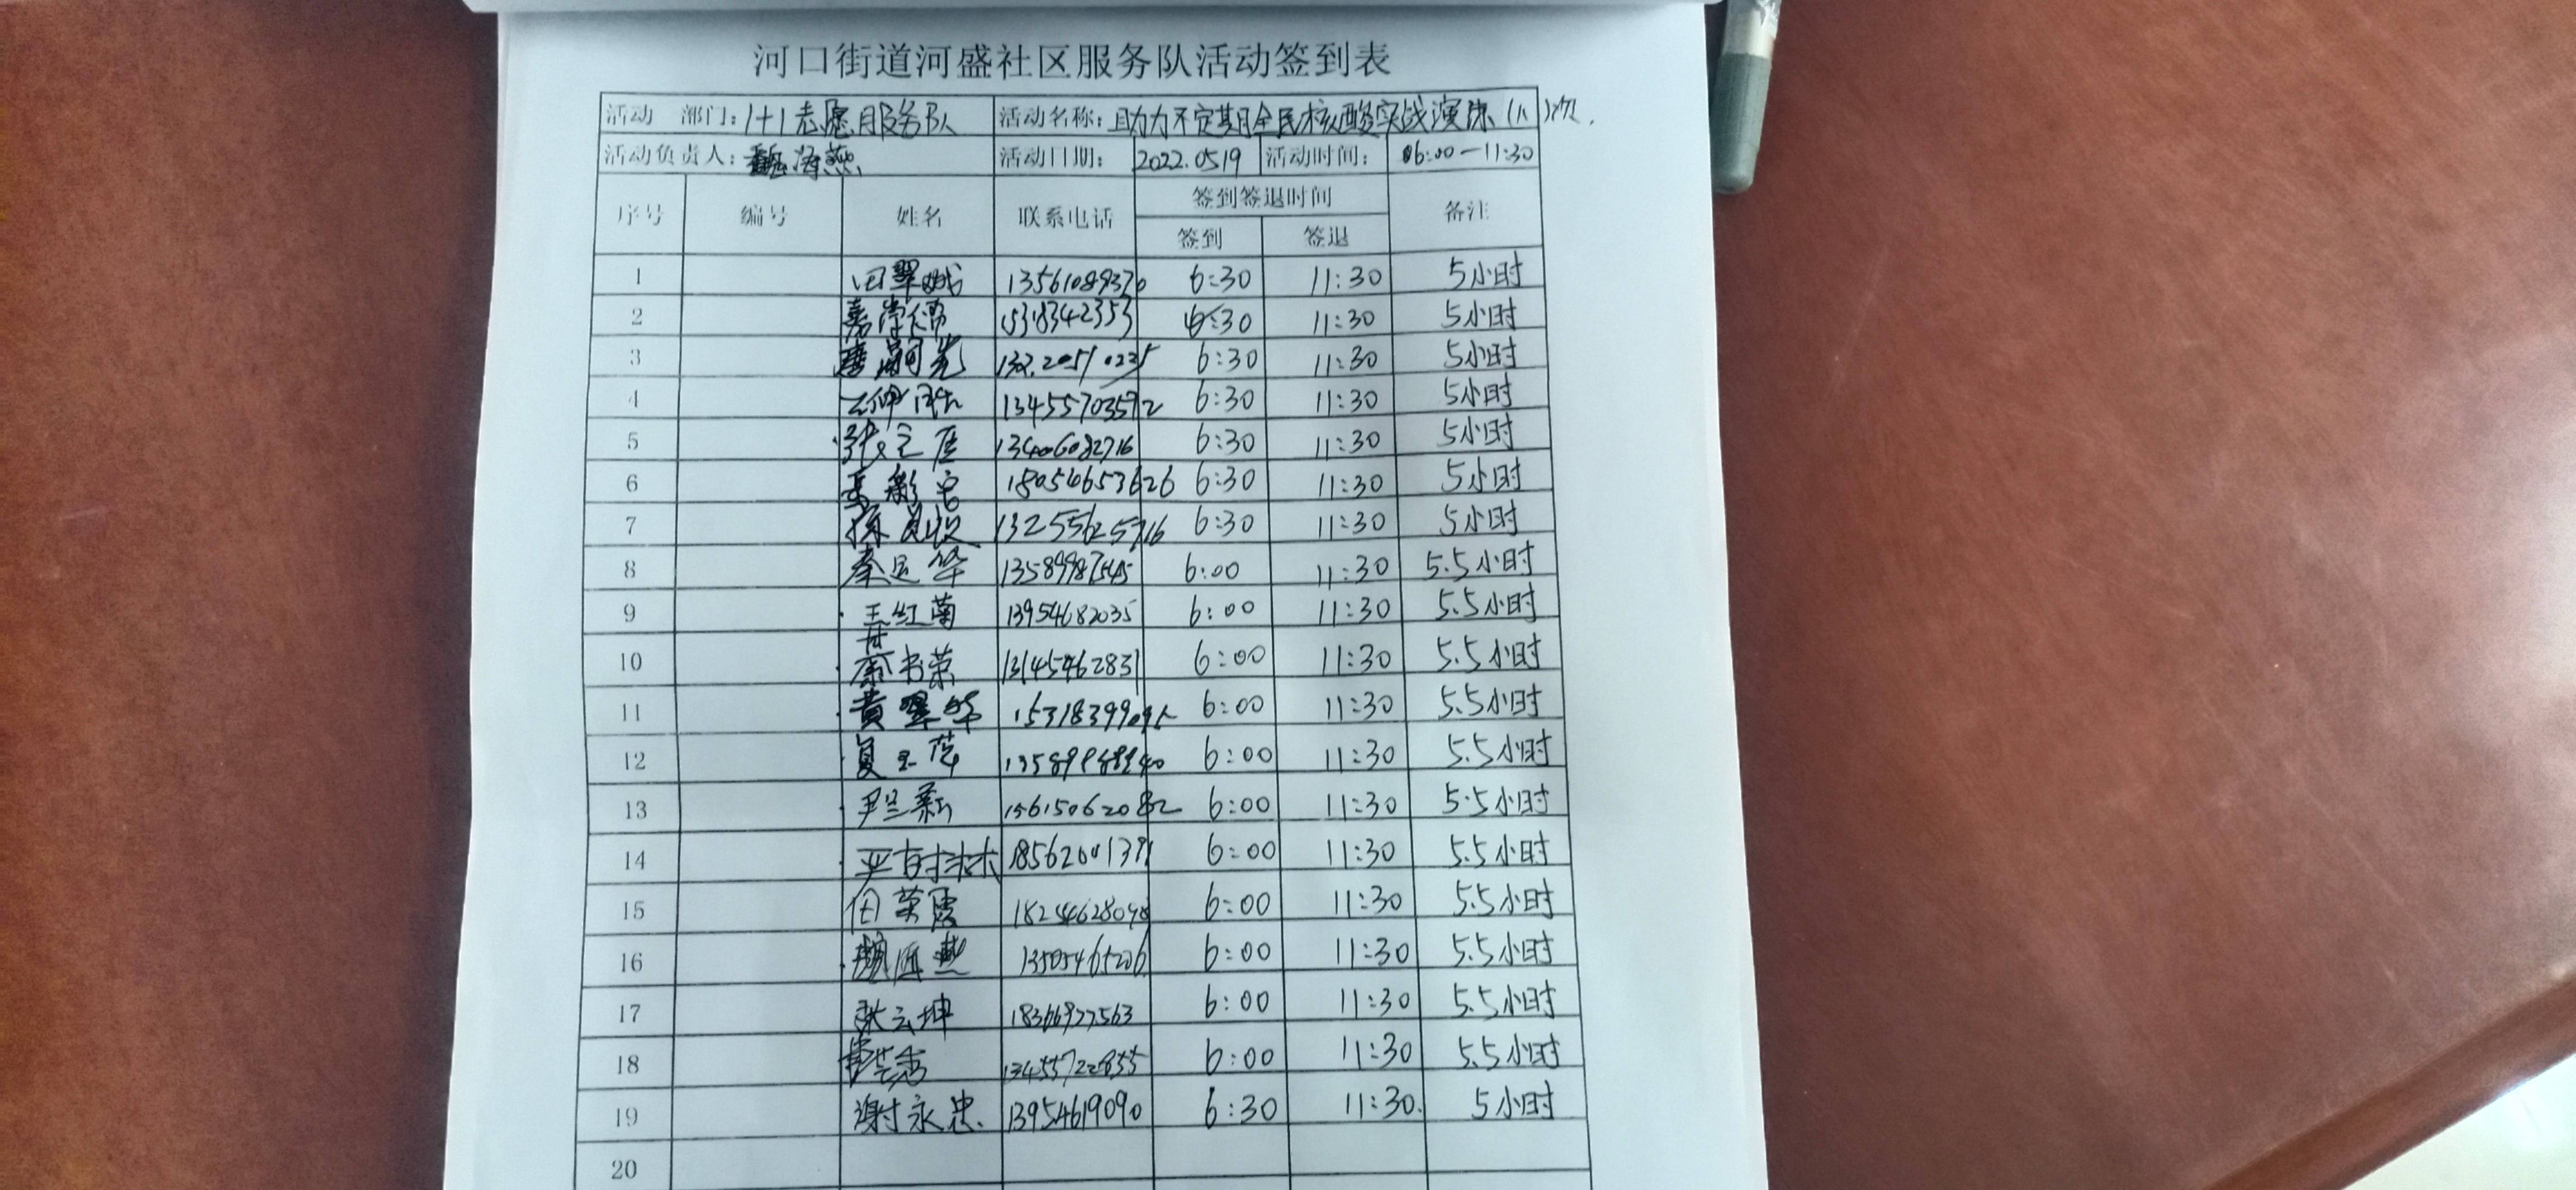 河口街道河盛社区服务队活动签到表
活动 部门：1+1志愿服务队 活动名称：助力不定期全民核酸实战演练（八）次.
活动负责人：魏海燕 活动日期： 2022.0519 活动时间： 06:00—11:30
序号 编号 姓名 联系电话 签到签退时间 备注
签到 签退
1 田翠娥 13561089370 6:30 11:30 5小时
2 15318342353 6:30 11:30 5小时
3 6:30 11:30 5小时
4 13455703572 6:30 11:30 5小时
5 13406082716 6:30 11:30 5小时
6 18054653626 6:30 11:30 5小时
7 13255625716 6:30 11:30 5小时
8 秦足华 13589987545 6:00 11:30 5.5小时
9 王红菊 13954682035 6:00 11:30 5.5小时
10 书荣 13145462831 6:00 11:30 5.5小时
11 黄翠华 6:00 11:30 5.5小时
12 6:00 11:30 5.5小时
13 尹兰新 15615062082 6:00 11:30 5.5小时
14 6:00 11:30 5.5小时
15 田荣霞 18254628098 6:00 11:30 5.5小时
16 13505465206 6:00 11:30 5.5小时
17 张云坤 18366927563 6:00 11:30 5.5小时
18 13455722855 6:00 11:30 5.5小时
19 谢永忠. 13954619090 6:30 11:30. 5小时
20